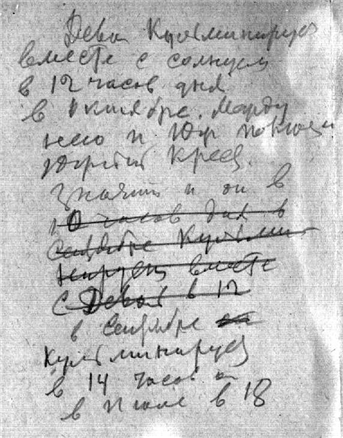 Дева Культминирует
вместе с солнцем
в 12 часов дня
в Октябре. Между
нею и
Крест.
значит и он в
10 часов дня в
Сентябре Культми
нирует вместе
с Девой в 12
в Сентябре
Культминирует
в 14 часов
в Июле в 18